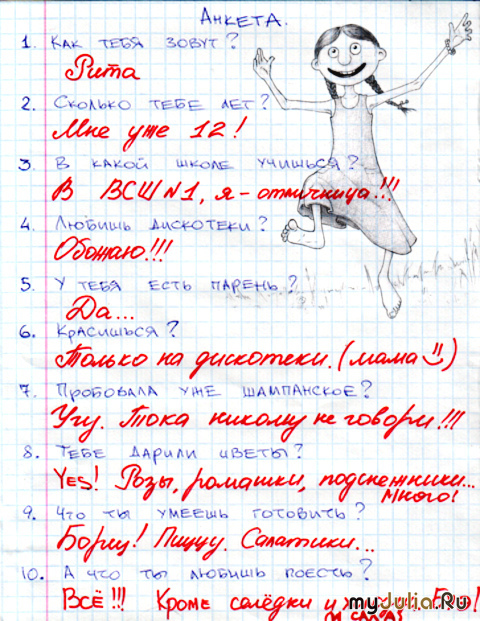 АНКЕТА.
1. КАК ТЕБЯ ЗОВУТ?
Рита
2. СКОЛЬКО ТЕБЕ ЛЕТ?
Мне уже 12!
3. В КАКОЙ ШКОЛЕ УЧИШЬСЯ?
В ВСШ №1, я - отличница!!!
4. ЛЮБИШЬ ДИСКОТЕКИ?
Обожаю!!!
5. У ТЕБЯ ЕСТЬ ПАРЕНЬ?
Да...
6. КРАСИШЬСЯ?
Только на дискотеки. (мама =))
7. ПРОБОВАЛА УЖЕ ШАМПАНСКОЕ?
Угу. Тока никому не говори!!!
8. ТЕБЕ ДАРИЛИ ЦВЕТЫ?
YES! Розы, ромашки, подснежники...
МНОГО!
9. ЧТО ТЫ УМЕЕШЬ ГОТОВИТЬ?
Борщ! Пиццу. Салатики...
10. А ЧТО ТЫ ЛЮБИШЬ ПОЕСТЬ?
ВСЁ!!! Кроме селёдки и
myJulia.Ru